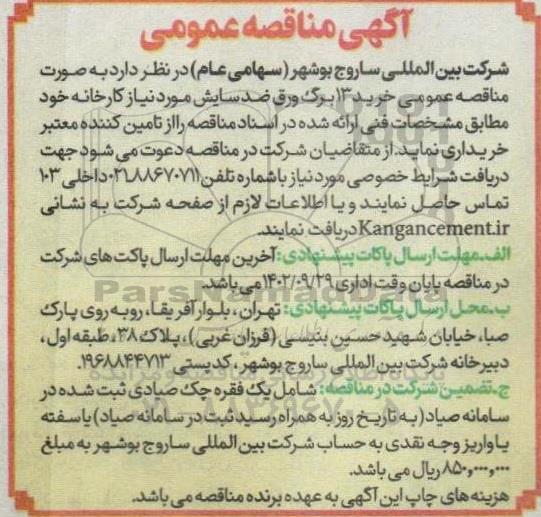 آگهی مناقصه عمومی
شرکت بین المللی ساروج بوشهر (سهامی عام) در نظر دارد به صورت
مناقصه عمومی خرید ۱۳ برگ ورق ضد سایش مورد نیاز کارخانه خود
مطابق مشخصات فنی ارائه شده در اسناد مناقصه را از تامین کننده معتبر
خریداری نماید. از متقاضیان شرکت در مناقصه دعوت می شود جهت
دریافت شرایط خصوصی مورد نیاز با شماره تلفن ۰۲۱۸۸۶۷۰۷۱۱ داخلی ۱۰۳
تماس حاصل نمایند و یا اطلاعات لازم از صفحه شرکت به نشانی
Kangancement.ir دریافت نمایند.
الف.مهلت ارسال پاکات پیشنهادی: آخرین مهلت ارسال پاکت های شرکت
در مناقصه پایان وقت اداری ۱۴۰۲/۰۹/۲۹ می باشد.
ParsNamadData
ب.محل ارسال پاکات پیشنهادی: تهران، بلوار آفریقا، روبه روی پارک
صبا، خیابان شهید حسین بنیسی (فرزان غربی)، پلاک ۳۸، طبقه اول،
دبیرخانه شرکت بین المللی ساروج بوشهر، کدپستی ۱۹۶۸۸۴۴۷۱۳.
ج.تضمین شرکت در مناقصه: شامل یک فقره چک صیادی ثبت شده در
سامانه صیاد (به تاریخ روز به همراه رسید ثبت در سامانه صیاد) یا سفته
یا واریز وجه نقدی به حساب شرکت بین المللی ساروج بوشهر به مبلغ
۸۵۰,۰۰۰,۰۰۰ ریال می باشد.
هزینه های چاپ این آگهی به عهده برنده مناقصه می باشد.